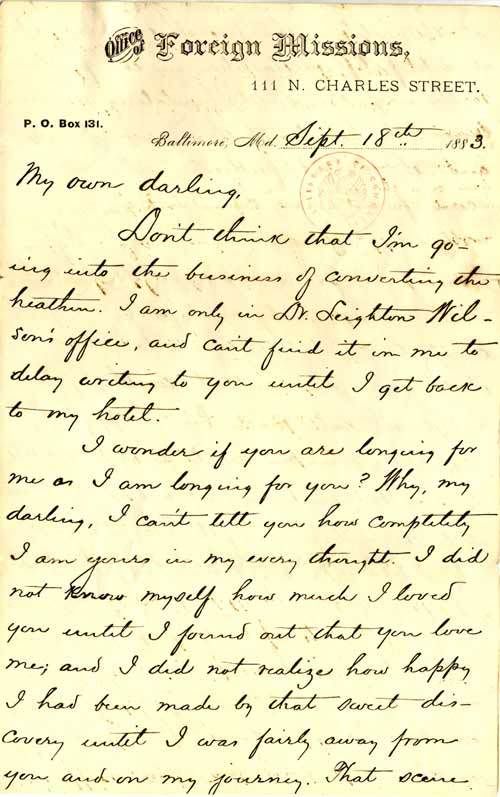 Office of Foreign Missions,
111 N. CHARLES STREET.
P. O. Box 131.
Baltimore, Md. Sept. 18th 1883.
My own darling,
Don't think that I'm go-
ing into the business of converting the
heathen. I am only in Dr. Leighton Wil-
son's office, and can't find it in me to
delay writing to you until I get back
to my hotel.
I wonder if you are longing for
me as I am longing for you? Why, my
darling, I can't tell you how completely
I am yours in my every thought. I did
not know myself how much I loved
you until I found out that you love
me; and I did not realize how happy
I had been made by that sweet dis-
covery until I was fairly away from
you and on my journey. That scene